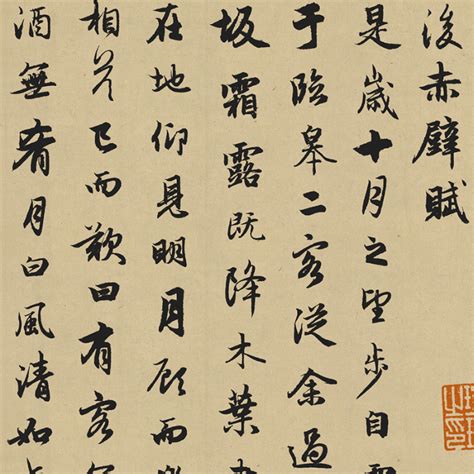 後赤壁賦
是歲十月之望步自
于臨皋二客從余過
坂霜露既降木葉
在地仰見明月顧而
相答已而歎曰有客
酒無肴月白風清如